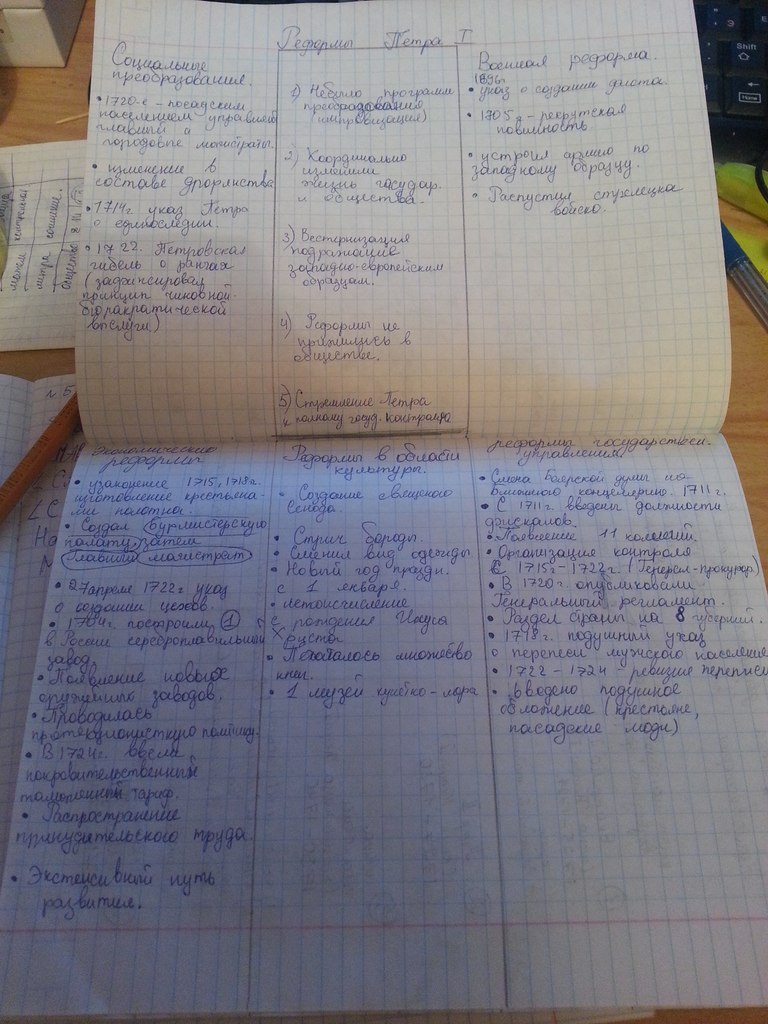 Реформы Петра I
Социальные
преобразования.
• 1720-е - посадским
населением управляли
главный и
городовые магистраты
• изменение в
составе дворянства
• 1714г указ Петра
о единоследии.
• 1722. Петровская
о рангах
(зафиксировал
принцип чиновной
выслуги)
1) Небыло программ
преобразования
(импровизация)
2) Координально
изменили
жизнь государ.
и общества.
3) Вестернизация
подражание
западно-европейским
образцам.
4) Реформы не
прижились в
обществе.
5) Стремление Петра
к полному госуд. контролю
Военная реформа.
1696г
• указ о создании флота.
• 1705г - рекрутская
повинность
• устроил армию по
западному образцу.
• Распустил стрелецка
войско.
Экономические
реформы
• узаконение 1715, 1718г.
изготовление крестьяна-
ми полотна.
• Создал бурмистерскую
палату, затем
Главный магистрат
• 27 апреля 1722г указ
о создании цехов.
• 1704г. построили 1
в России сереброплавильный
завод
• Появление новых
оружейных заводов.
• Проводилась
протекционисткую политику.
• В 1724г. ввели
покровительственный
таможенный тариф.
• Распространение
принудительского труда.
• Экстенсивный путь
развития.
Реформы в области
культуры.
• Создание священого
Сенода.
• Стриг бороды.
• Сменил вид одежды
• Новый год праздн.
с 1 января.
• летоисчисление
с рождения Иисуса
Христа
• Печаталось множество
книг.
• 1 музей кунстко-мора
реформы государствен.
управления
• Смена Боярской думы на
Ближнюю концелерию. 1711г.
• С 1711г. введены должности
фискалов.
• Появление 11 колегий
• Организация контроля
С 1715г-1722г. (Генерал-прокурор)
• В 1720г. опубликовали
Генеральный регламент.
• Раздел страны на 8 губерний.
• 1718г. подушный указ
о переписи мужского населения
• 1722 - 1724 - ревизия переписи
• введено подушное
обложение (крестьяне,
пасадские люди)